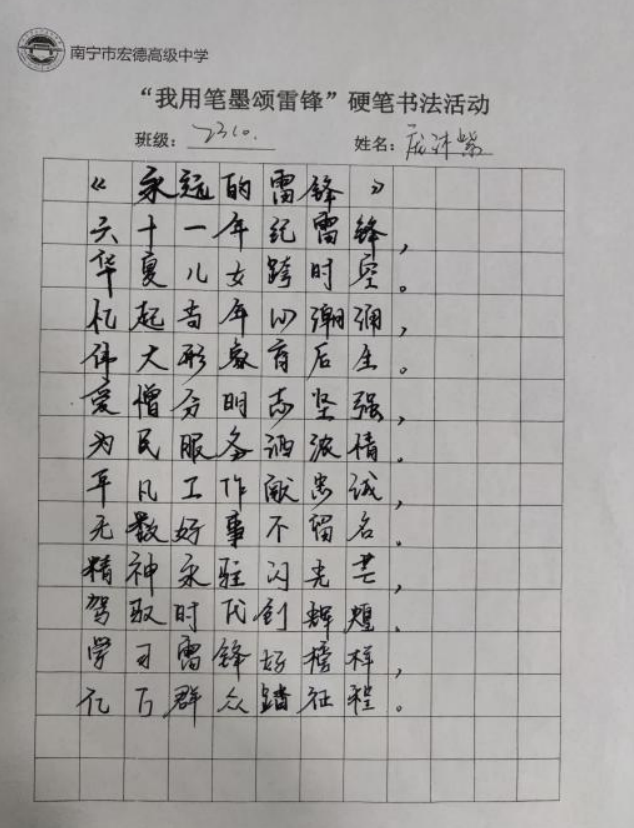 南宁市宏德高级中学
“我用笔墨颂雷锋”硬笔书法活动
班级: 2310. 姓名:
《永远的雷锋》
六十一年纪雷锋,
华夏儿女跨时空。
忆起当年心潮涌,
伟大形象育后生。
爱憎分明志坚强,
为民服务洒浓情。
平凡工作献忠诚,
无数好事不留名。
精神永驻闪光芒,
驾驭时代创辉煌。
学习雷锋好榜样,
亿万群众踏征程。